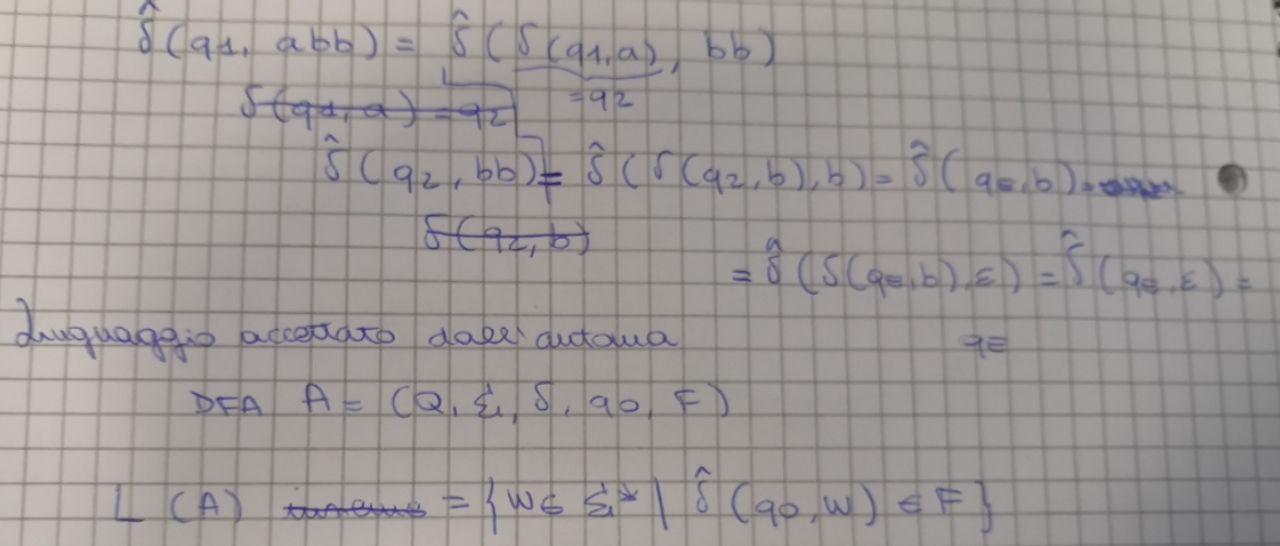 δ̂(q1, abb) = δ̂(δ(q1,a), bb)
δ(q1,a) = q2 = q2
δ̂(q2, bb) = δ̂(δ(q2,b),b) = δ̂(qe,b)
δ(q2,b)
= δ̂(δ(qe,b),ε) = δ̂(qe,ε) =
Linguaggio accettato dall'automa qe
DFA A = (Q, Σ, δ, q0, F)
L(A) = {w ∈ Σ* | δ̂(q0,w) ∈ F}